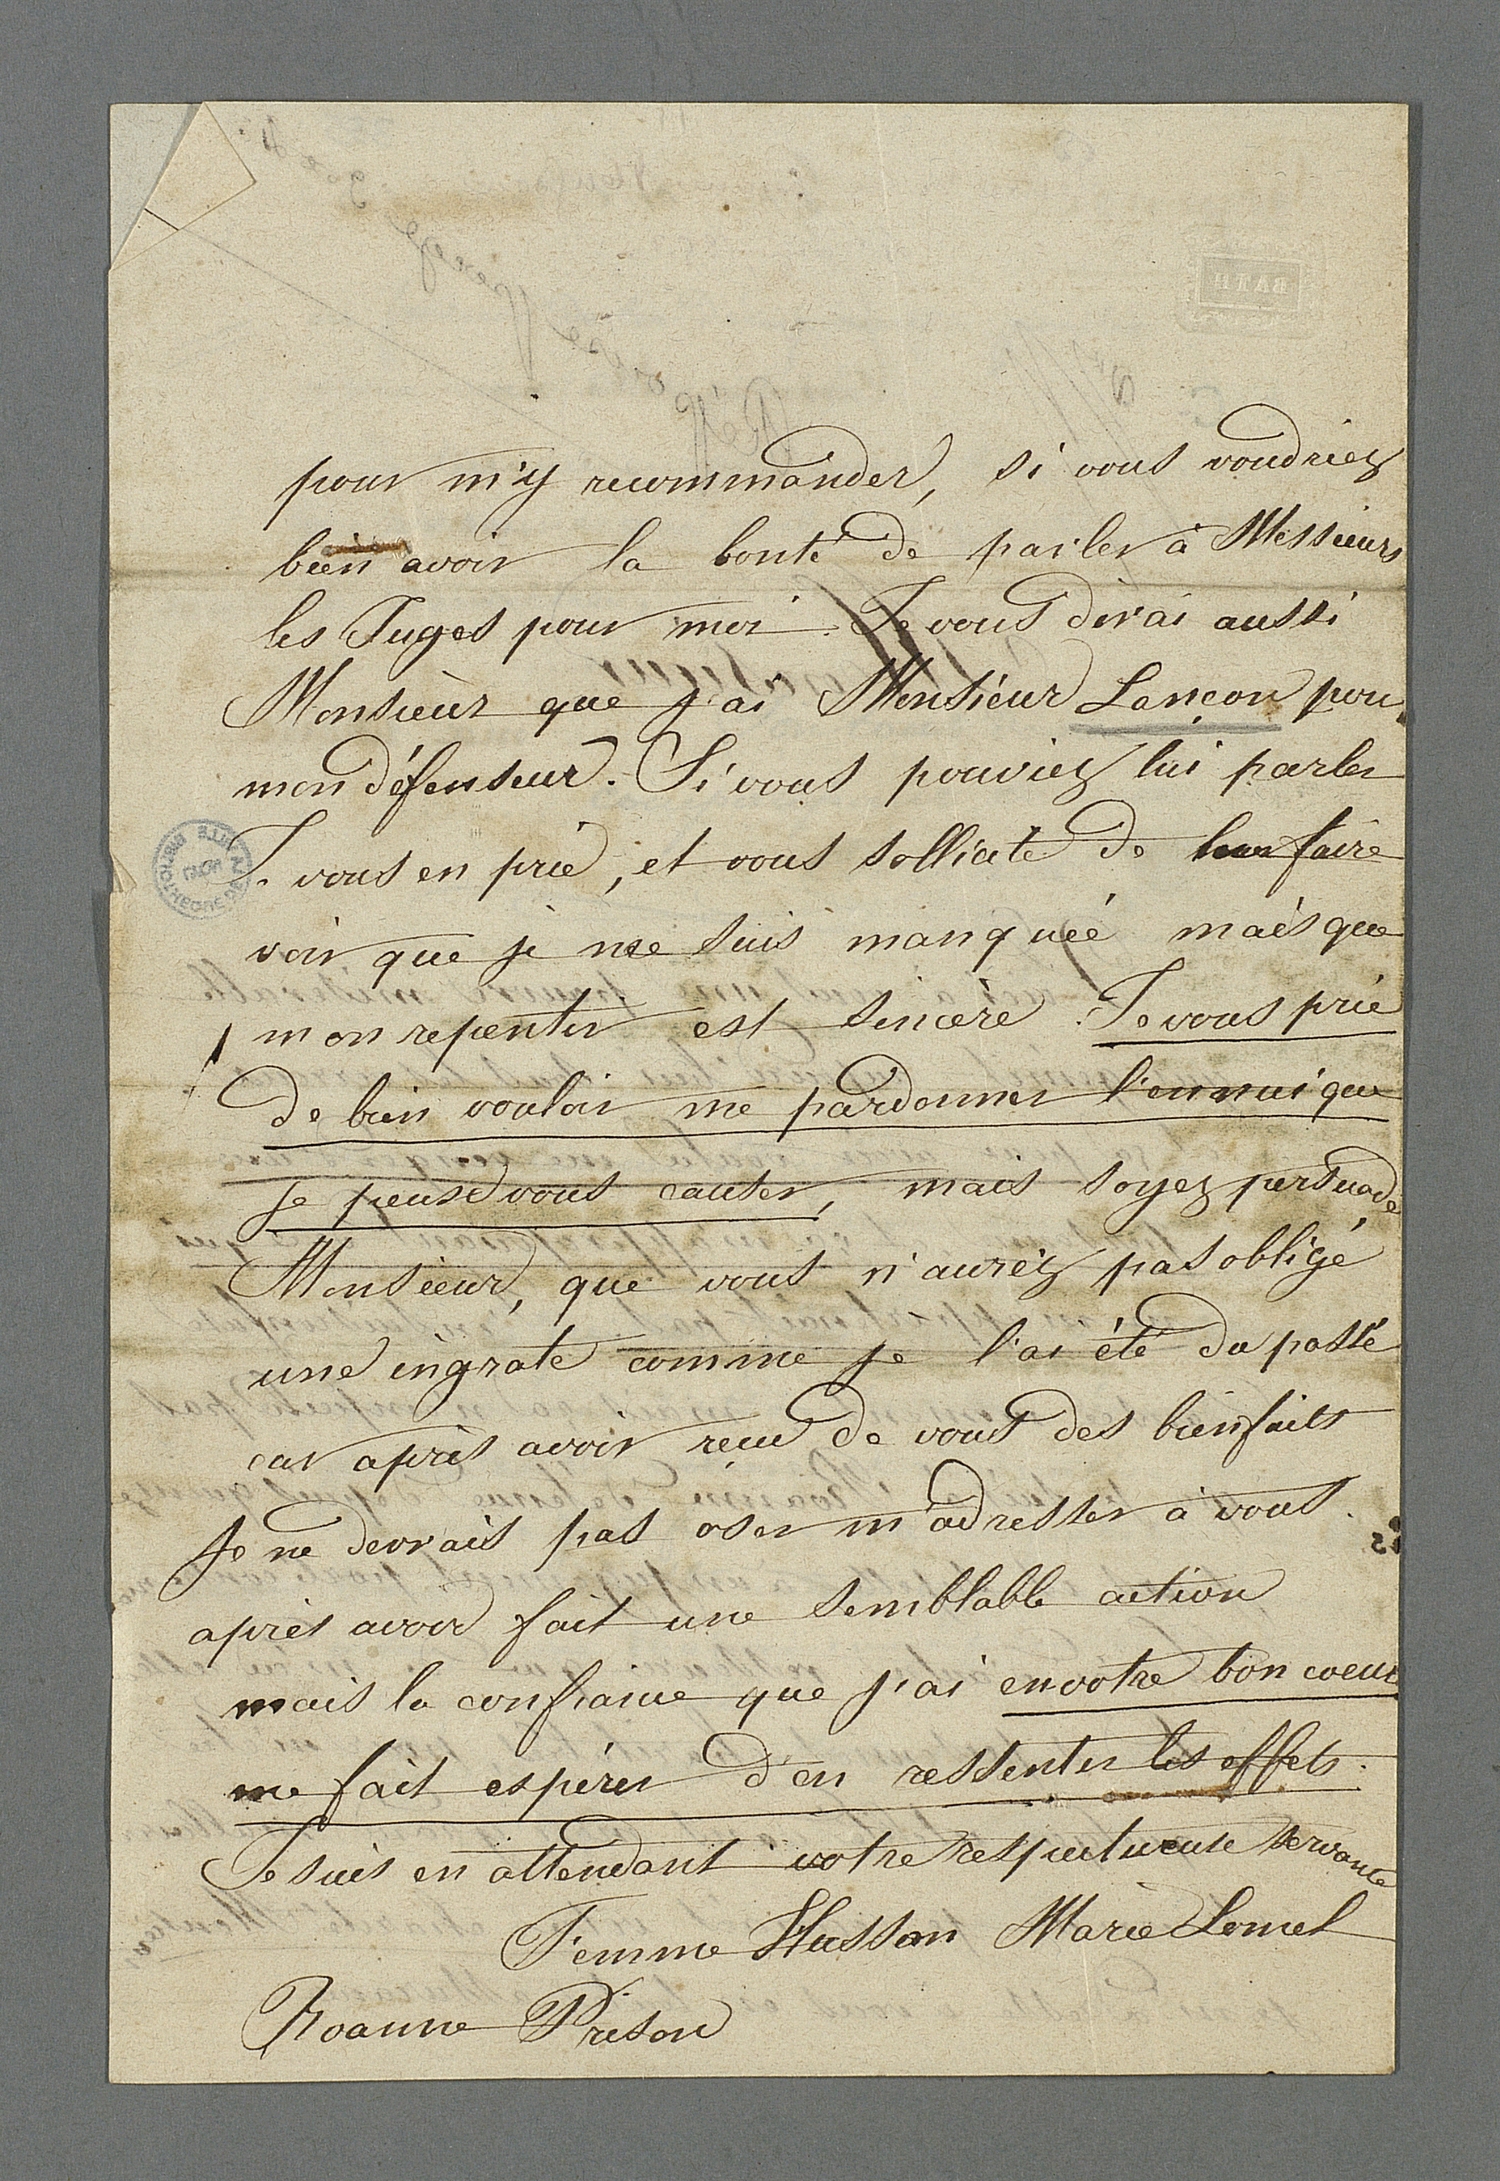 pour m'y recommander, si vous voudriez
bien avoir la bonté de parler à Messieurs
les Juges pour moi. Je vous dirai aussi
Monsieur que j'ai Monsieur Lançon pour
mon défenseur. Si vous pouviez lui parler
Je vous en prie, et vous sollicite de leur faire
voir que je me suis manquée mais que
mon repentir est sincère. Je vous prie
de bien vouloir me pardonner l'ennui que
je peuse vous causer, mais soyez persuadé
Monsieur, que vous n'aurez pas obligé
une ingrate comme je l'ai été du passé
car après avoir reçue de vous des bienfaits
Je ne devrais pas oser m'adresser à vous.
après avoir fait une semblable action
mais la confiance que j'ai en votre bon coeur
me fait espérer d'en ressentir les effets.
Je suis en attendant votre respectueuse servante
Femme Husson Marie Lomel
Roanne Prison